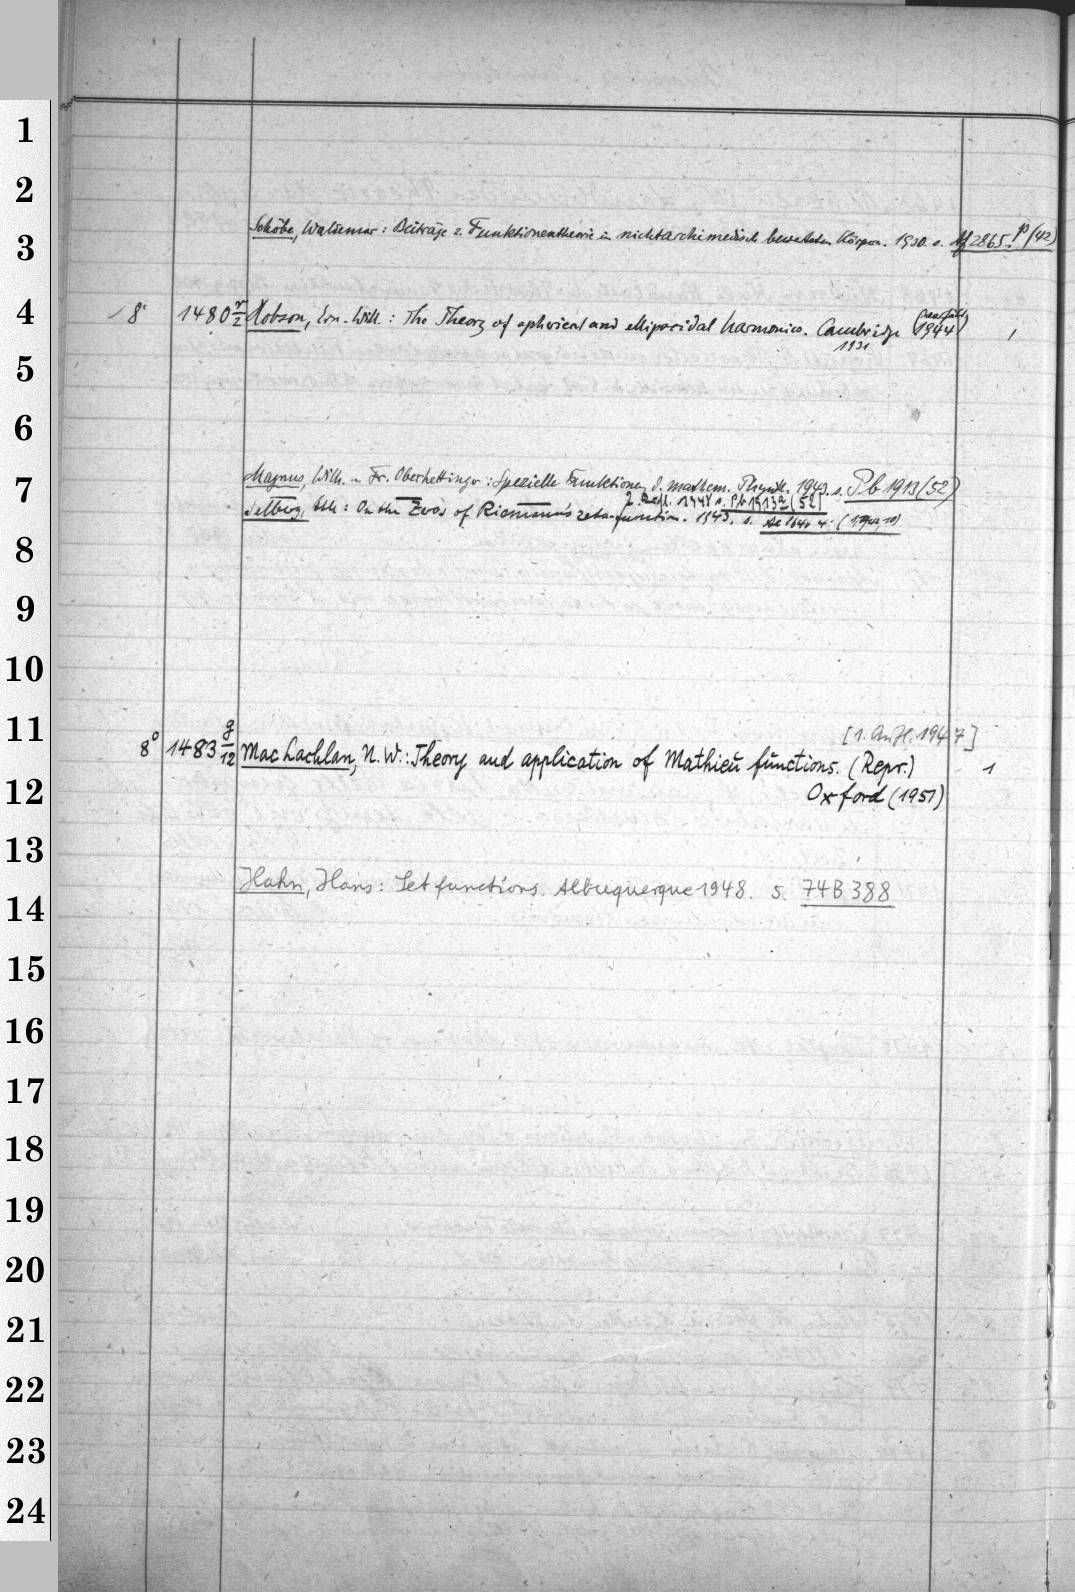 1
2
3
Schöbe, Waldemar: Beiträge z. Funktionentheorie in nichtarchimedisch bewerteten Körpern. 1930. s. Af 2865 p (42)
4
8° 1480 r/2 Hobson, Ern. Will.: The Theory of spherical and ellipsoidal harmonics. Cambridge 1931 (1944)
5
6
7
Magnus, Wilh. u. Fr. Oberhettinger: Spezielle Funktionen d. mathem. Physik. 1943. s. Pb 1913 (52)
2. Aufl. 1948 s. Pb 1913 a (52)
Selberg, Atle: On the Zeros of Riemann's zeta-function. 1943. s.
8
9
10
11
[1. Aufl. 1947]
8° 1483 g/12 Mac Lachlan, N. W.: Theory and application of Mathieu functions. (Repr.) 1
12
Oxford (1951)
13
Hahn, Hans: Set functions. Albuquerque 1948. s. 74 B 388
14
15
16
17
18
19
20
21
22
23
24